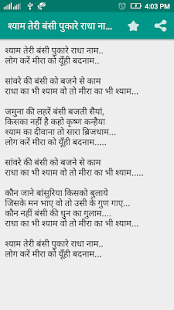 4:03 PM
श्याम तेरी बंसी पुकारे राधा ना...
श्याम तेरी बंसी पुकारे राधा नाम..
लोग करें मीरा को यूँही बदनाम..
सांवरे की बंसी को बजने से काम
राधा का भी श्याम वो तो मीरा का भी श्याम.....
जमुना की लहरें बंसी बजती सैयां,
किसका नहीं है कहो कृष्ण कन्हैया
श्याम का दीवाना तो सारा ब्रिजधाम...
लोग करें मीरा को यूँही बदनाम.....
सांवरे की बंसी को बजने से काम
राधा का भी श्याम वो तो मीरा का भी श्याम.....
कौन जाने बांसुरिया किसको बुलाये
जिसके मन भाए वो तो उसी के गुण गाए...
कौन नहीं बंसी की धुन का गुलाम....
राधा का भी श्याम वो तो मीरा का भी श्याम...
श्याम तेरी बंसी पुकारे राधा नाम..
लोग करें मीरा को यूँही बदनाम...